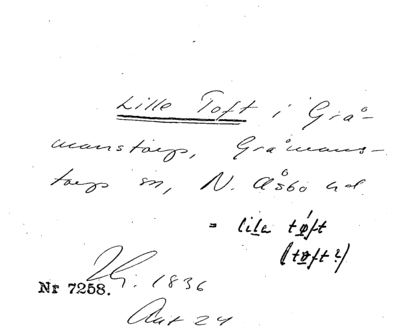 Lille Toft i Grå-
manstorp, Gråmans-
torp sn, N. Åsbo hd
= lile tøft
(tøft?)
1836
Nr 7258.
Akt 24